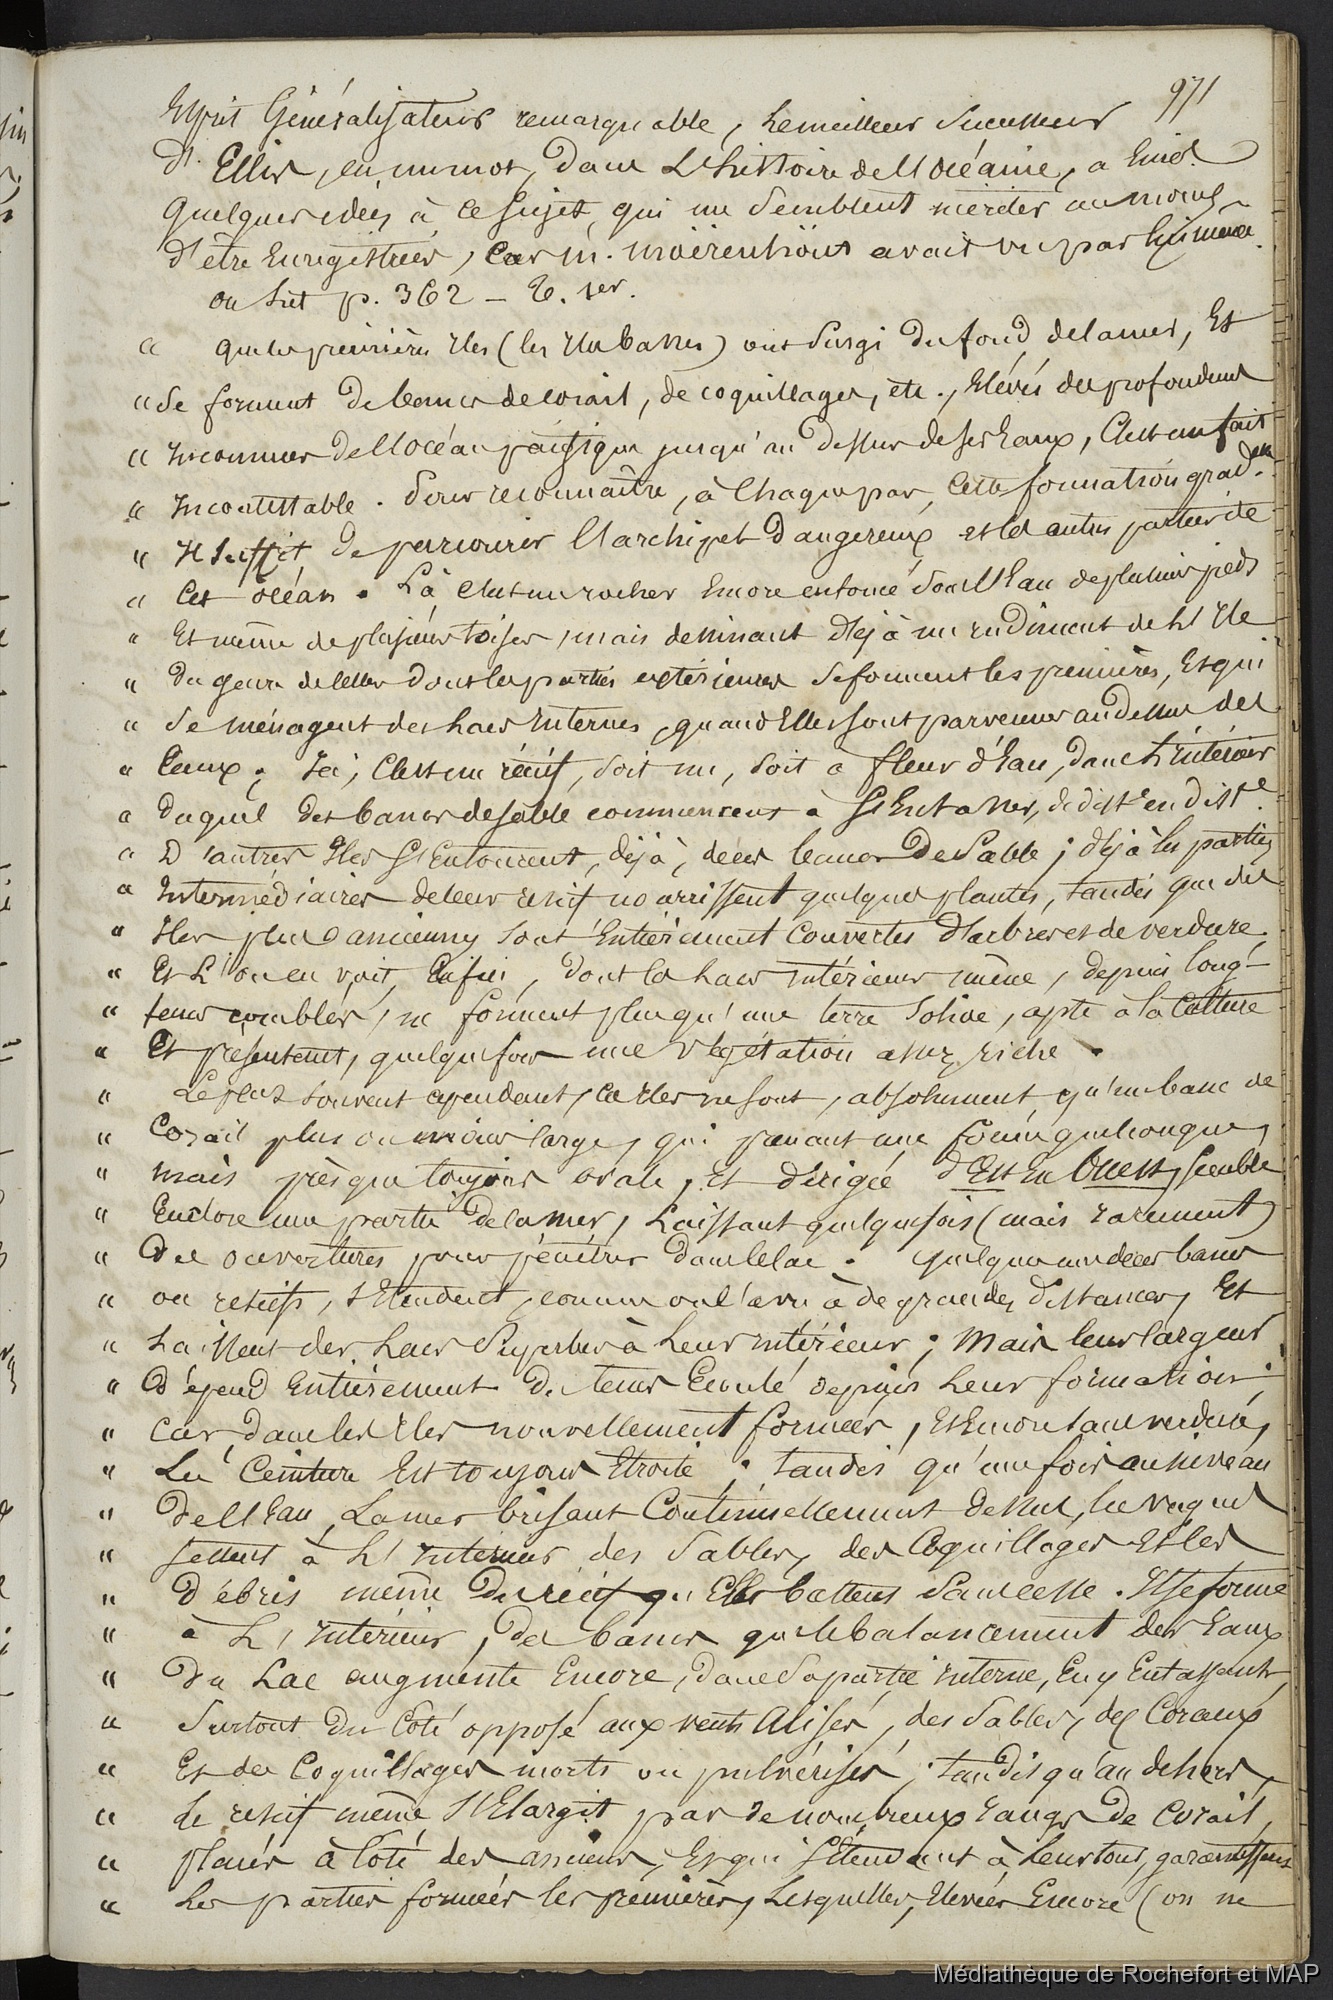 971
Esprit Généralisateur remarquable, le meilleur successeur
d'Ellis, en un mot, dans l'histoire de l'océanie, a émis
quelques idées, à ce sujet, qui me semblent mériter au moins
d'être enregistrées, car M. Moërenhout avait vu par lui même.
on lit p. 362 _ T. 1er.
" que les premières iles (les iles basses) ont surgi du fond de la mer, et
" se forment de bancs de corail, de coquillages, etc., élevés des profondeurs
" inconnues de l'océan pacifique jusqu'au dessus de ses eaux, c'est un fait
" incontestable. Pour reconnaître, à chaque pas, cette formation grad.elle
" il suffit de parcourir l'archipel dangereux et les autres parties de
" cet océan. Là c'est un rocher encore enfoncé sous l'eau de plusieurs pieds
" et même de plusieurs toises, mais dessinant déjà un rudiment de l'ile
" du genre de celles dont les parties extérieures se forment les premières, et qui
" se ménagent des lacs internes, quand elles sont parvenues au dessus des
" eaux; ici, c'est un récif, soit nu, soit à fleur d'eau, dans l'intérieur
" duquel des bancs de sable commencent à s'entasser, de dist.e en dist.e
" D'autres iles s'entourent, déjà, de ces bancs de sable; déjà les parties
" intermédiaires de leur récif nourrissent quelques plantes, tandis que des
" iles plus anciennes sont entièrement couvertes d'arbres et de verdure.
" Et l'on en voit, enfin, dont les lacs intérieurs même, depuis long-
" tems comblés, ne forment plus qu'une terre solide, apte à la culture
" et présentent, quelquefois une végétation assez riche.
" Le plus souvent cependant, ces iles ne sont, absolument, qu'un banc de
" corail plus ou moins large, qui prenant une forme quelconque,
" mais presque toujours ovale, et dirigée d'Est en Ouest, semble
" enclore une partie de la mer, laissant quelquefois (mais rarement)
" des ouvertures pour pénétrer dans le lac. quelques uns de ces bancs
" ou récifs, s'étendent, comme on l'a vu à de grandes distances, et
" laissent des lacs superbes à leur intérieur; mais leur largeur
" dépend entièrement du tems écoulé depuis leur formation;
" car, dans les iles nouvellement formées, et encore sans verdure,
" la ceinture est toujours étroite; tandis qu'une fois au niveau
" de l'eau, la mer brisant continuellement dessus, les vagues
" jettent à l'intérieur des sables, des coquillages et les
" débris même du récif qu'elles battent sans cesse. Il se forme
" à l'intérieur, des bancs que le balancement des eaux
" du lac augmente encore, dans sa partie interne, en y entassant,
" surtout du côté opposé aux vents alisés, des sables, des coraux
" et des coquillages morts ou pulvérisés; tandis qu'au dehors,
" le récif même s'élargit par de nombreux rangs de corail,
" placés à côté des anciens, et qui s'étendant à leur tour, garantissent
" les parties formées les premières, lesquelles, élevées encore (on ne
Médiathèque de Rochefort et MAP